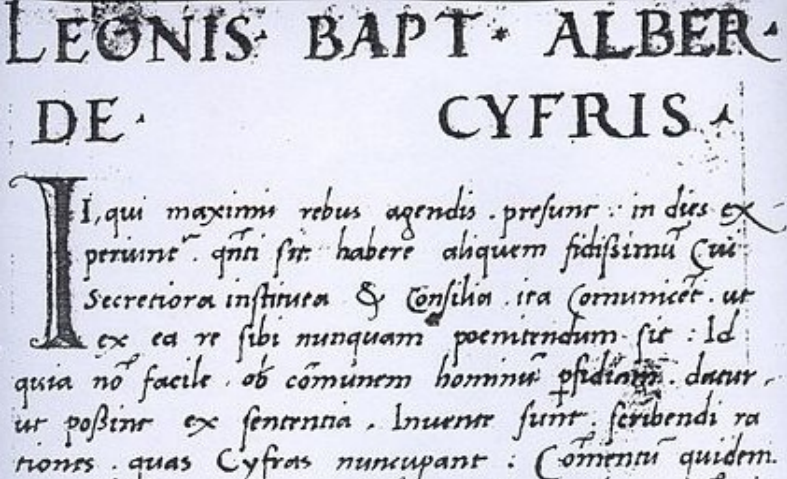 LEONIS· BAPT· ALBER·
DE· CYFRIS·
II, qui maximis rebus agendis . presunt : in dies ex
periunt᷑ . qn̄ti sit habere aliquem fidissimū Cui
Secretiora instituta & Consilia . ita Comunicet . ut
ex ea re sibi nunquam poenitendum sit : Id
quia nō facile . ob cōmunem hominū ꝑfidiam . datur ,
ut poßint ex sententia . Inuente sunt . scribendi ra
tiones . quas Cyfras nuncupant : Cōmentū quidem .